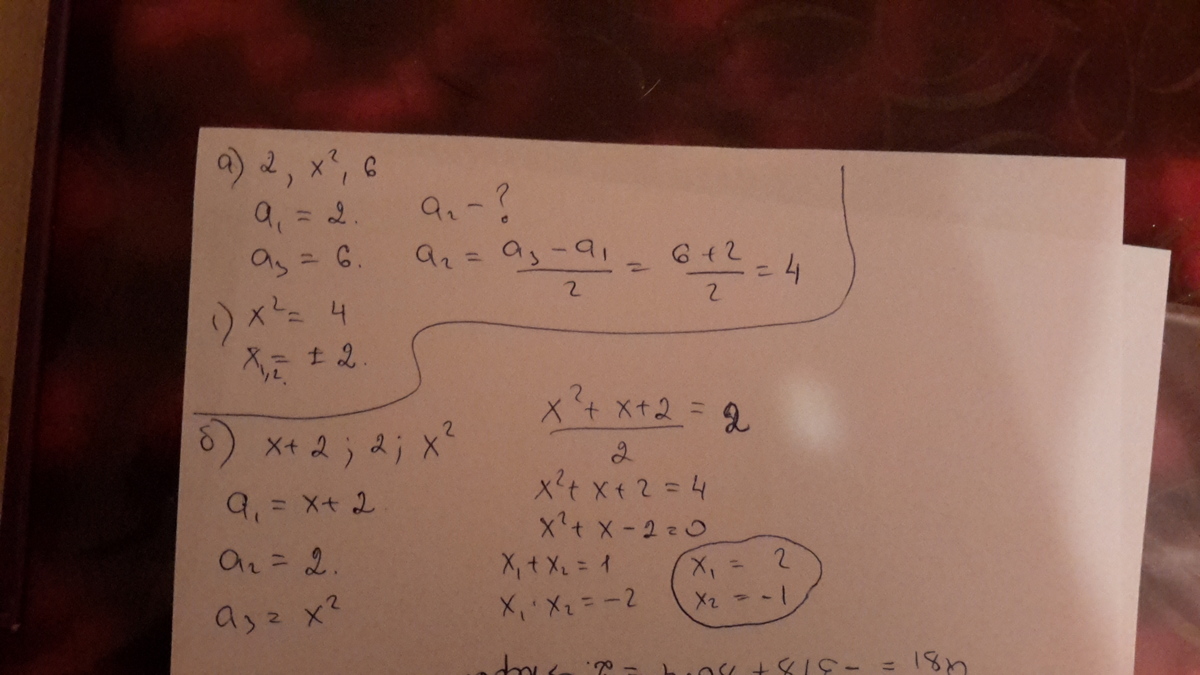 а) 2, x², 6
a₁ = 2. a₂ - ?
a₃ = 6. a₂ = (a₃ - a₁)/2 = (6+2)/2 = 4
1) x² = 4
x₁,₂ = ± 2.
б) x+2; 2; x²
a₁ = x+2
a₂ = 2.
a₃ = x²
(x² + x+2)/2 = 2
x² + x + 2 = 4
x² + x - 2 = 0
x₁ + x₂ = 1
x₁ · x₂ = -2
x₁ = 2
x₂ = -1